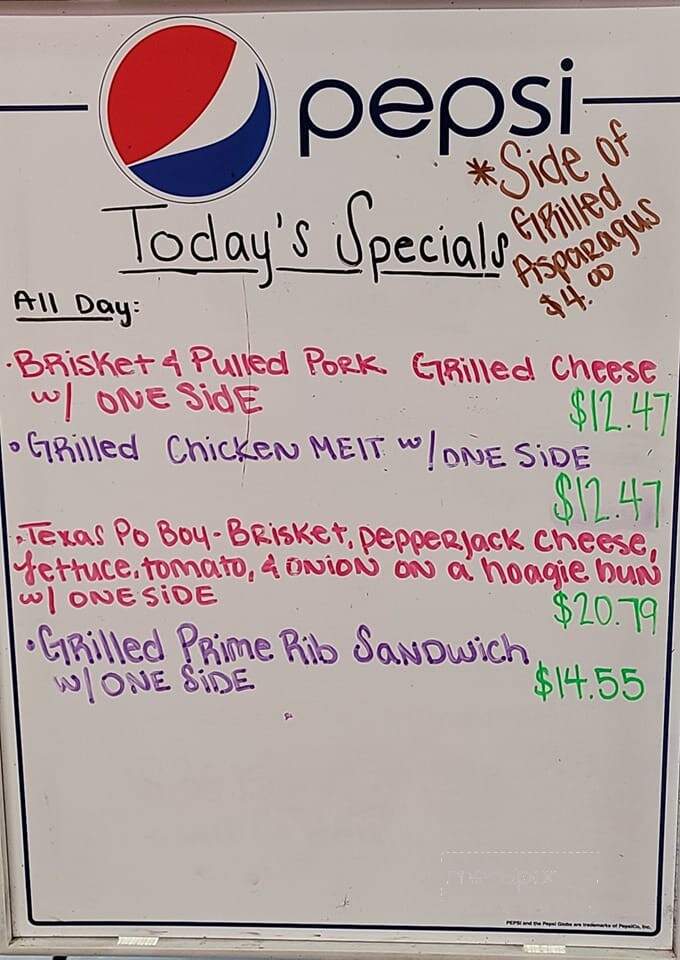 pepsi
*Side of
Grilled
Asparagus
$4.00
Today's Specials
All Day:
·Brisket & Pulled Pork Grilled Cheese
w/ ONE SidE
$12.47
·Grilled Chicken MElT w/ ONE SiDE
$12.47
·Texas Po Boy-Brisket, pepperjack cheese,
lettuce, tomato, & onion on a hoagie bun
w/ ONE SiDE
$20.79
·Grilled Prime Rib Sandwich
w/ ONE SiDE
$14.55
PEPSI and the Pepsi Globe are trademarks of PepsiCo, Inc.